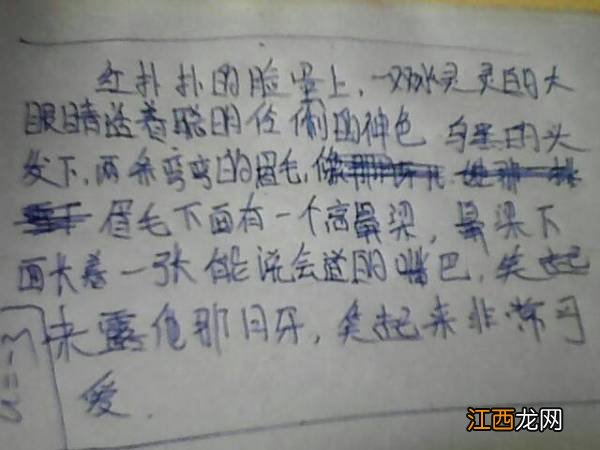 红扑扑的脸蛋上,一双水灵灵的大
眼睛透着聪明伶俐的神色 乌黑的头
发下,两条弯弯的眉毛,像那
眉毛下面有一个高鼻梁,鼻梁下
面长着一张能说会道的嘴巴,笑起
来露他那月牙,笑起来非常可
爱.
a=-3
江西龙网